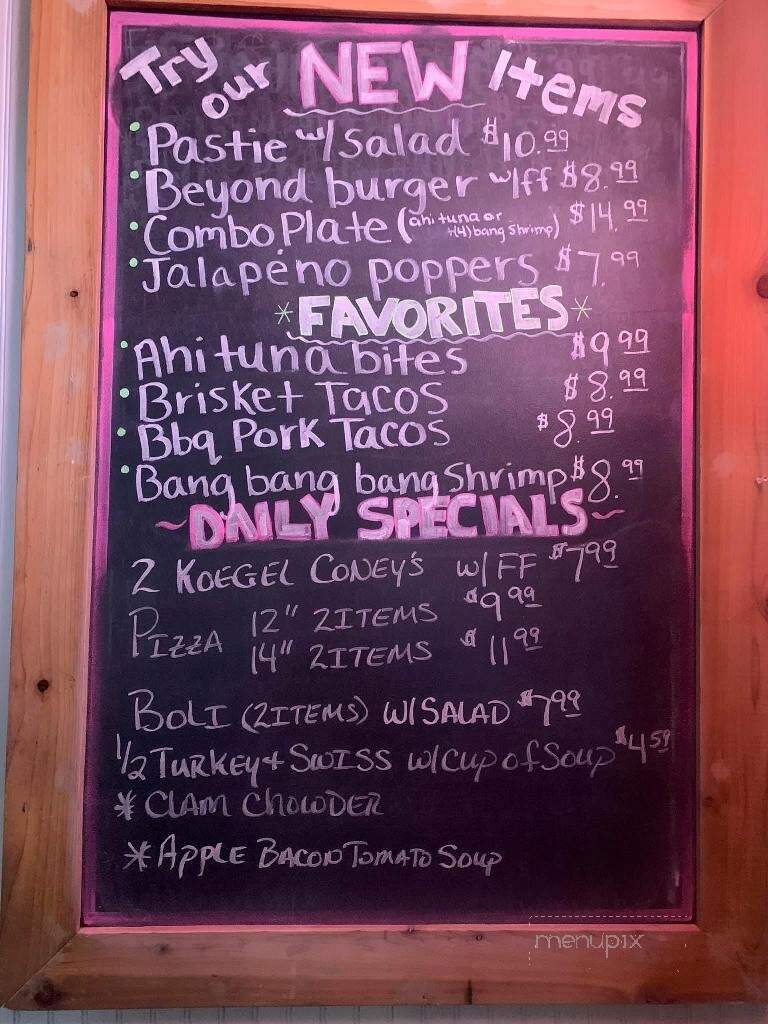 Try our NEW Items
Pastie w/salad $10.99
Beyond burger w/ff $8.99
Combo Plate (ahi tuna or +(4) bang shrimp) $14.99
Jalapéno poppers $7.99
*FAVORITES*
Ahi tuna bites $9.99
Brisket Tacos $8.99
Bbq Pork Tacos $8.99
Bang bang bang Shrimp $8.99
~DAILY SPECIALS~
2 KOEGEL CONEY'S W/ FF $7.99
PIZZA 12" 2 ITEMS $9.99
14" 2 ITEMS $11.99
BOLI (2 ITEMS) W/SALAD $7.99
1/2 TURKEY + SWISS W/ CUP of SOUP $4.59
* CLAM CHOWDER
* APPLE BACON TOMATO SOUP
menupix